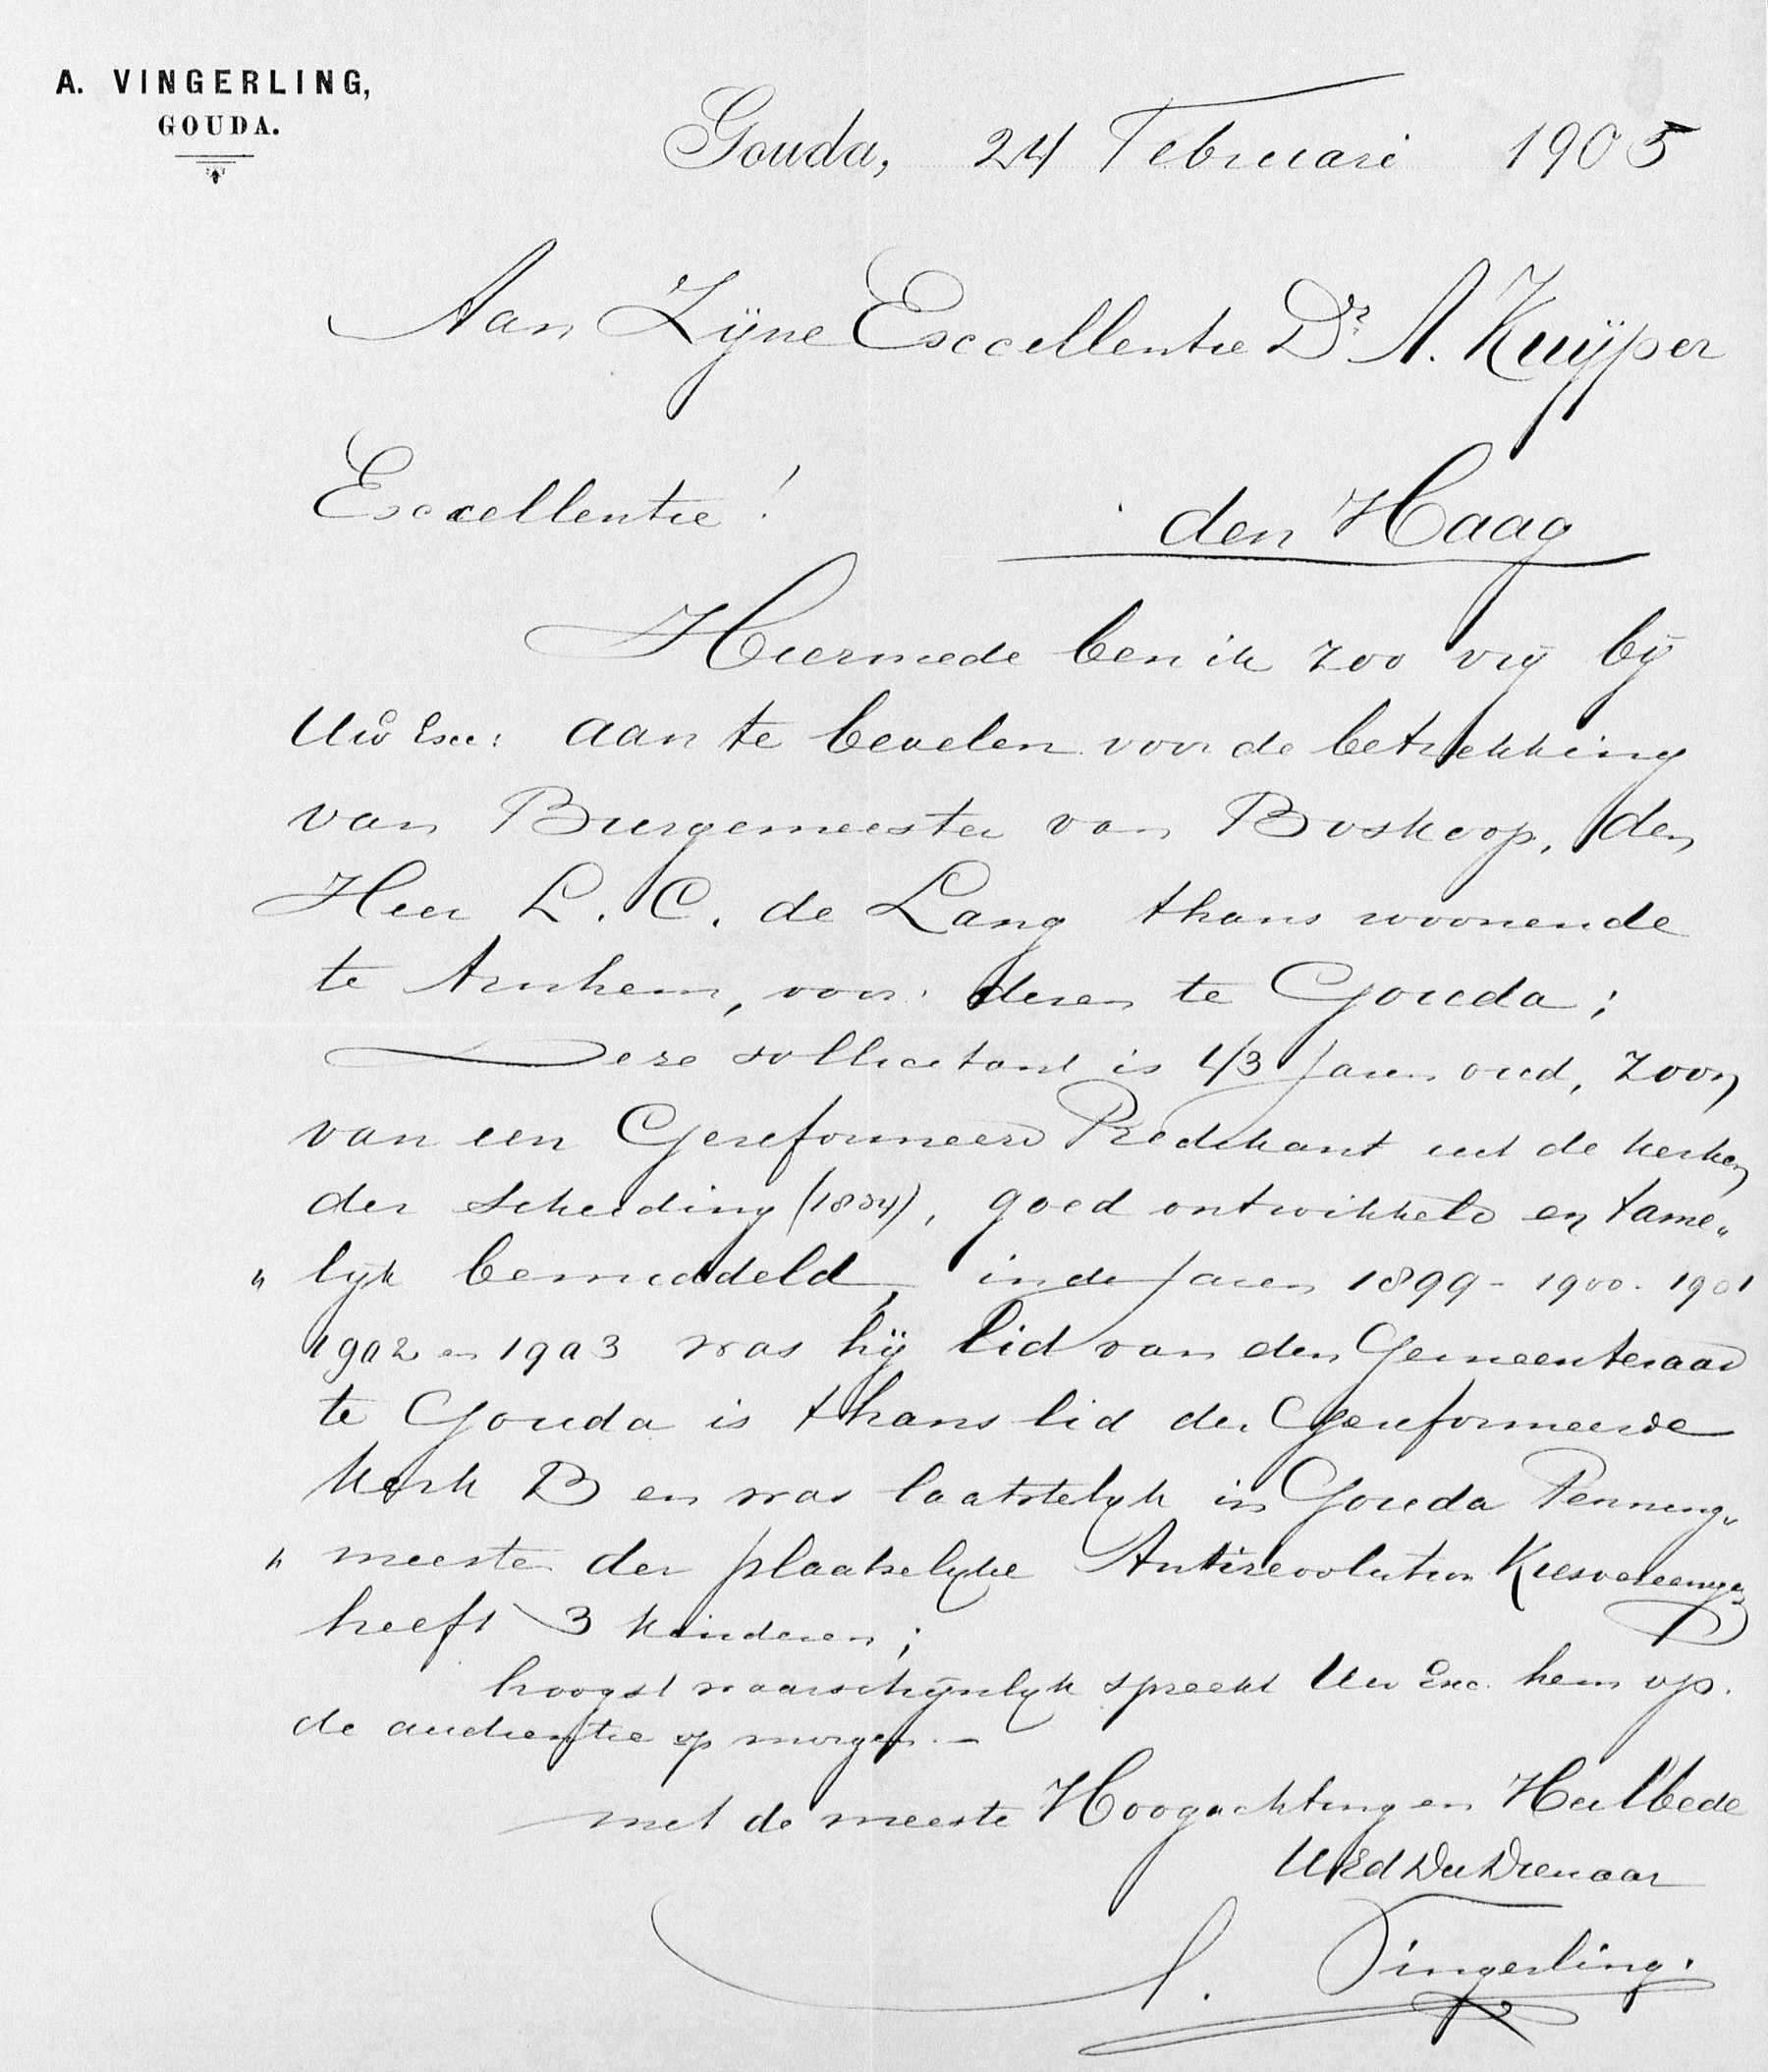 A. VINGERLING,
GOUDA.
Gouda, 24 Februari 1905
Aan Zijne Exccellentie Dr. A. Kuijper
Exccellentie!
den Haag
Hiermede ben ik zoo vrij bij
Uw Exc: aan te bevelen voor de betrekking
van Burgemeester van Boskoop, den
Heer L. C. de Lang thans woonende
te Arnhem, voor dezen te Gouda;
Deze sollicitant is 43 Jaren oud, zoon
van een Gereformeerd Predikant uit de kerken
der Scheiding (1834), goed ontwikkeld en tame„
„ lijk bemiddeld, in de Jaren 1899 - 1900 - 1901
1902 en 1903 was hij lid van den Gemeenteraad
te Gouda is thans lid der Gereformeerde
Kerk B en was laatstelijk in Gouda Penning„
„ meester der plaatselijke Antirevolution Kiesvereeniging
heeft 3 kinderen;
hoogst waarschijnlijk spreekt Uw Exc. hem op
de audientie op morgen. —
met de meeste Hoogachting en Heilbede
UEd Dw Dienaar
A. Vingerling.